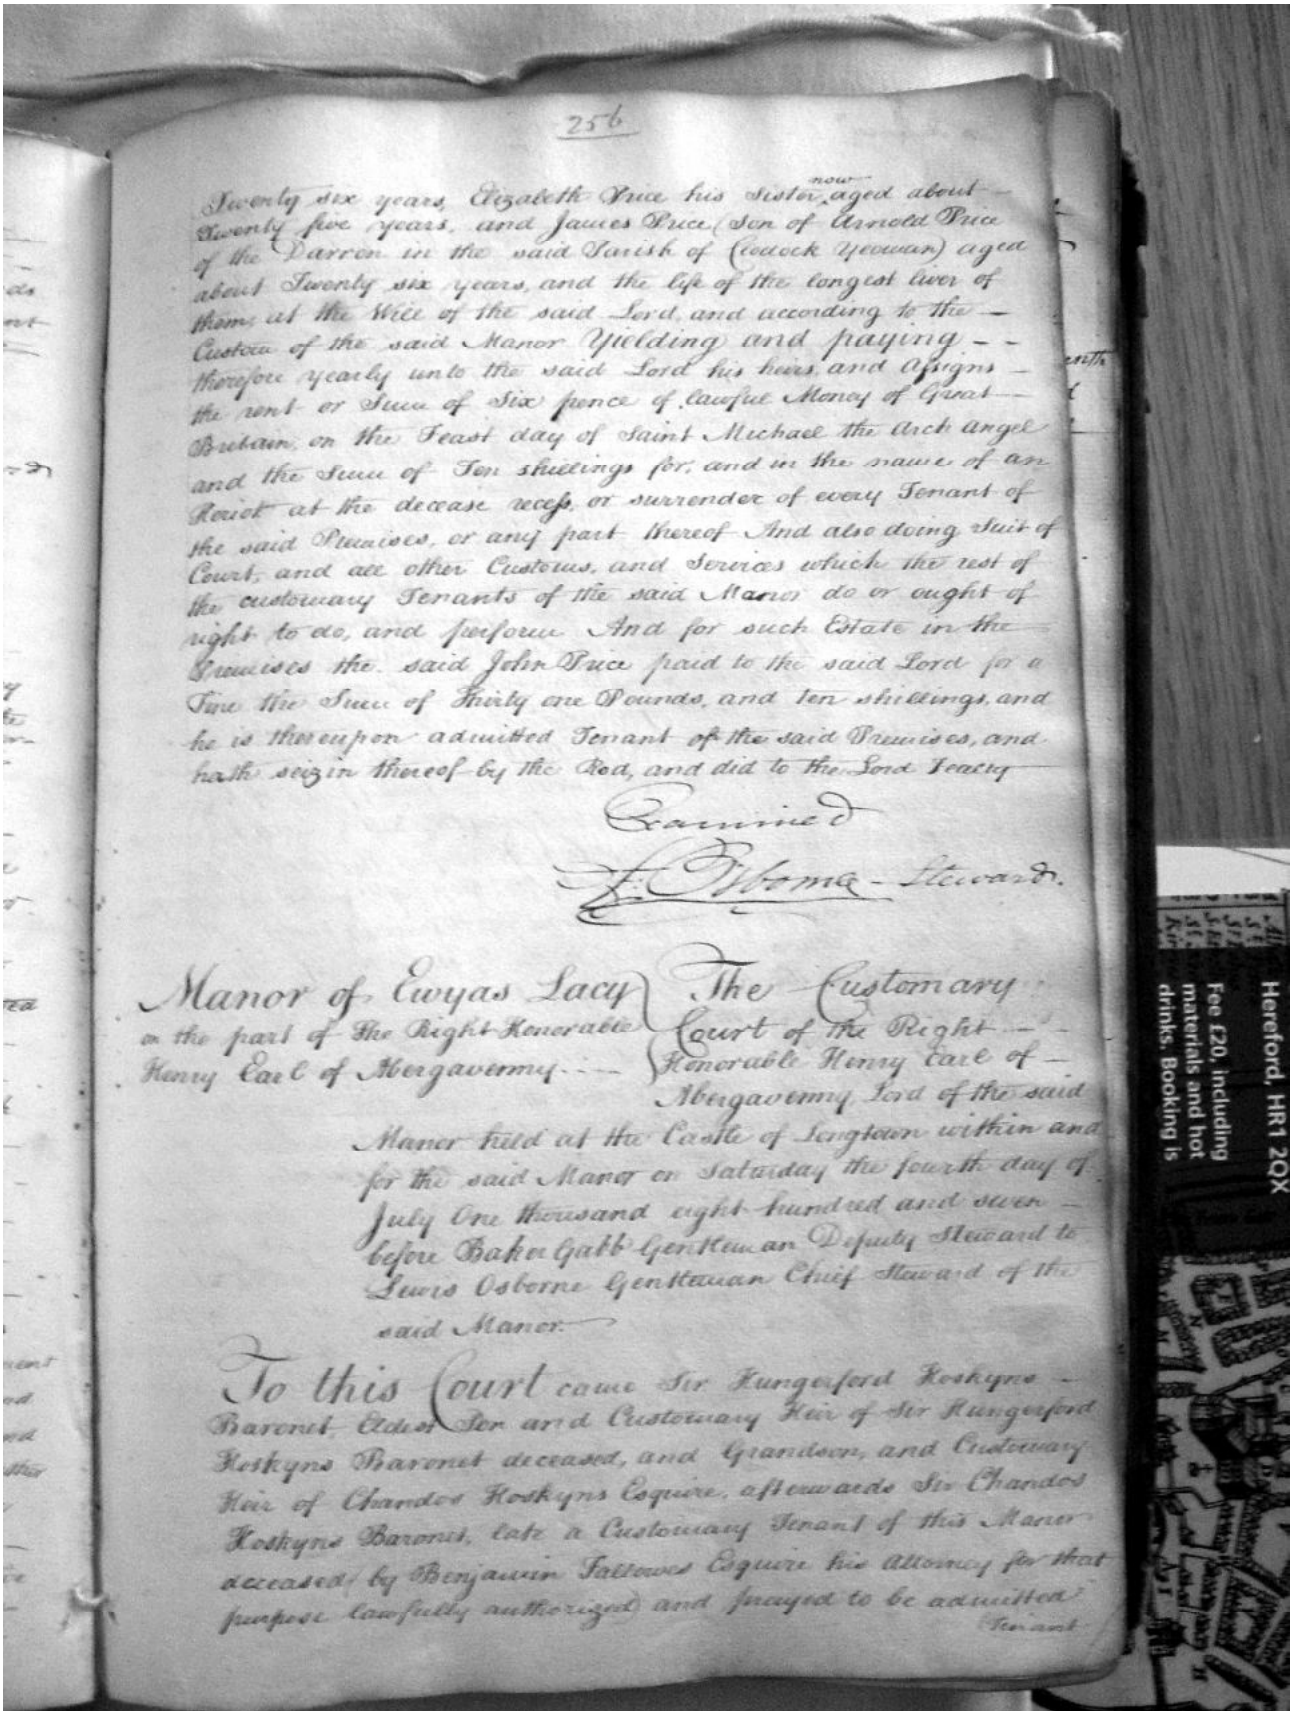 256
Twenty six years, Elizabeth Price his Sister now aged about
Twenty five years, and James Price (Son of Arnold Price
of the Darren in the said Parish of Clodock Yeoman) aged
about Twenty six years, and the life of the longest liver of
them, at the Will of the said Lord, and according to the
Custom of the said Manor Yielding and paying
therefore yearly unto the said Lord his heirs and Assigns
the rent or Sum of Six pence of lawful Money of Great
Britain, on the Feast day of Saint Michael the Arch Angel
and the Sum of Ten shillings for, and in the name of an
Heriot at the decease recess, or surrender of every Tenant of
the said Premises, or any part thereof And also doing Suit of
Court, and all other Customs, and Services which the rest of
the customary Tenants of the said Manor do or ought of
right to do, and perform And for such Estate in the
Premises the said John Price paid to the said Lord for a
Fine the Sum of Thirty one Pounds, and ten shillings, and
he is thereupon admitted Tenant of the said Premises, and
hath seizin thereof by the Rod, and did to the Lord Fealty
Examined
L: Osborne - Steward.
Manor of Ewyas Lacy
on the part of The Right Honorable
Henry Earl of Abergavenny
The Customary
Court of the Right
Honorable Henry Earl of
Abergavenny, Lord of the said
Manor held at the Castle of Longtown within and
for the said Manor on Saturday the fourth day of
July One thousand eight hundred and seven
before Baker Gabb Gentleman Deputy Steward to
Lewis Osborne Gentleman Chief Steward of the
said Manor.
To this Court came Sir Hungerford Hoskyns
Baronet, Eldest Son and Customary Heir of Sir Hungerford
Hoskyns Baronet deceased, and Grandson, and Customary
Heir of Chandos Hoskyns Esquire, afterwards Sir Chandos
Hoskyns Baronet, late a Customary Tenant of this Manor
deceased (by Benjamin Fallowes Esquire his Attorney for that
purpose lawfully authorized) and prayed to be admitted
Tenant
Hereford, HR1 2QX
Fee £20, including
materials and hot
drinks. Booking is